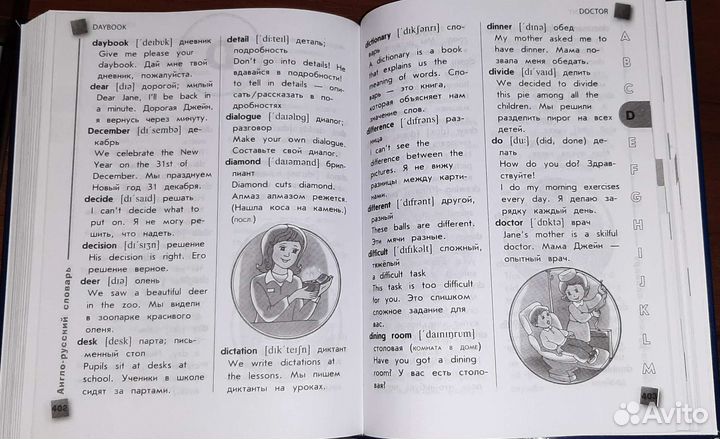 DAYBOOK
daybook [ˈdeɪbʊk] дневник
Give me please your
daybook. Дай мне твой
дневник, пожалуйста.
dear [dɪə] дорогой; милый
Dear Jane, I'll be back in
a minute. Дорогая Джейн,
я вернусь через минуту.
December [dɪˈsembə] де-
кабрь
We celebrate the New
Year on the 31st of
December. Мы празднуем
Новый год 31 декабря.
decide [dɪˈsaɪd] решать
I can't decide what to
put on. Я не могу ре-
шить, что надеть.
decision [dɪˈsɪʒn] решение
His decision is right. Его
решение верное.
deer [dɪə] олень
We saw a beautiful deer
in the zoo. Мы видели
в зоопарке красивого
оленя.
desk [desk] парта; пись-
менный стол
Pupils sit at desks at
school. Ученики в школе
сидят за партами.
detail [ˈdi:teɪl] деталь;
подробность
Don't go into details! Не
вдавайся в подробности!
to tell in details — опи-
сать/рассказать в по-
дробностях
dialogue [ˈdaɪəlɒg] диалог;
разговор
Make your own dialogue.
Составьте свой диалог.
diamond [ˈdaɪəmənd] брил-
лиант
Diamond cuts diamond.
Алмаз алмазом режется.
(Нашла коса на камень.)
(посл.)
dictation [dɪkˈteɪʃn] диктант
We write dictations at
the lessons. Мы пишем
диктанты на уроках.
Англо-русский словарь
402
DOCTOR
dictionary [ˈdɪkʃənrɪ] сло-
варь
A dictionary is a book
that explains us the
meaning of words. Сло-
варь — это книга,
которая объясняет нам
значение слов.
difference [ˈdɪfrəns] раз-
ница
I can't see the
difference between the
pictures. Я не вижу
разницы между карти-
нами.
different [ˈdɪfrənt] другой,
разный
These balls are different.
Эти мячи разные.
difficult [ˈdɪfɪkəlt] сложный,
тяжёлый
a difficult task
This task is too difficult
for you. Это слишком
сложное задание для
вас.
dining room [ˈdaɪnɪŋrʊm]
столовая (комната в доме)
Have you got a dining
room? У вас есть столо-
вая!
dinner [ˈdɪnə] обед
My mother asked me to
have dinner. Мама по-
звала меня обедать.
divide [dɪˈvaɪd] делить
We decided to divide
this pie among all the
children. Мы решили
разделить пирог на всех
детей.
do [du:] (did, done) де-
лать
How do you do? Здрав-
ствуйте!
I do my morning exercises
every day. Я делаю за-
рядку каждый день.
doctor [ˈdɒktə] врач
Jane's mother is a skilful
doctor. Мама Джейн —
опытный врач.
A
B
C
D
E
F
G
H
I
J
K
L
M
403
Avito